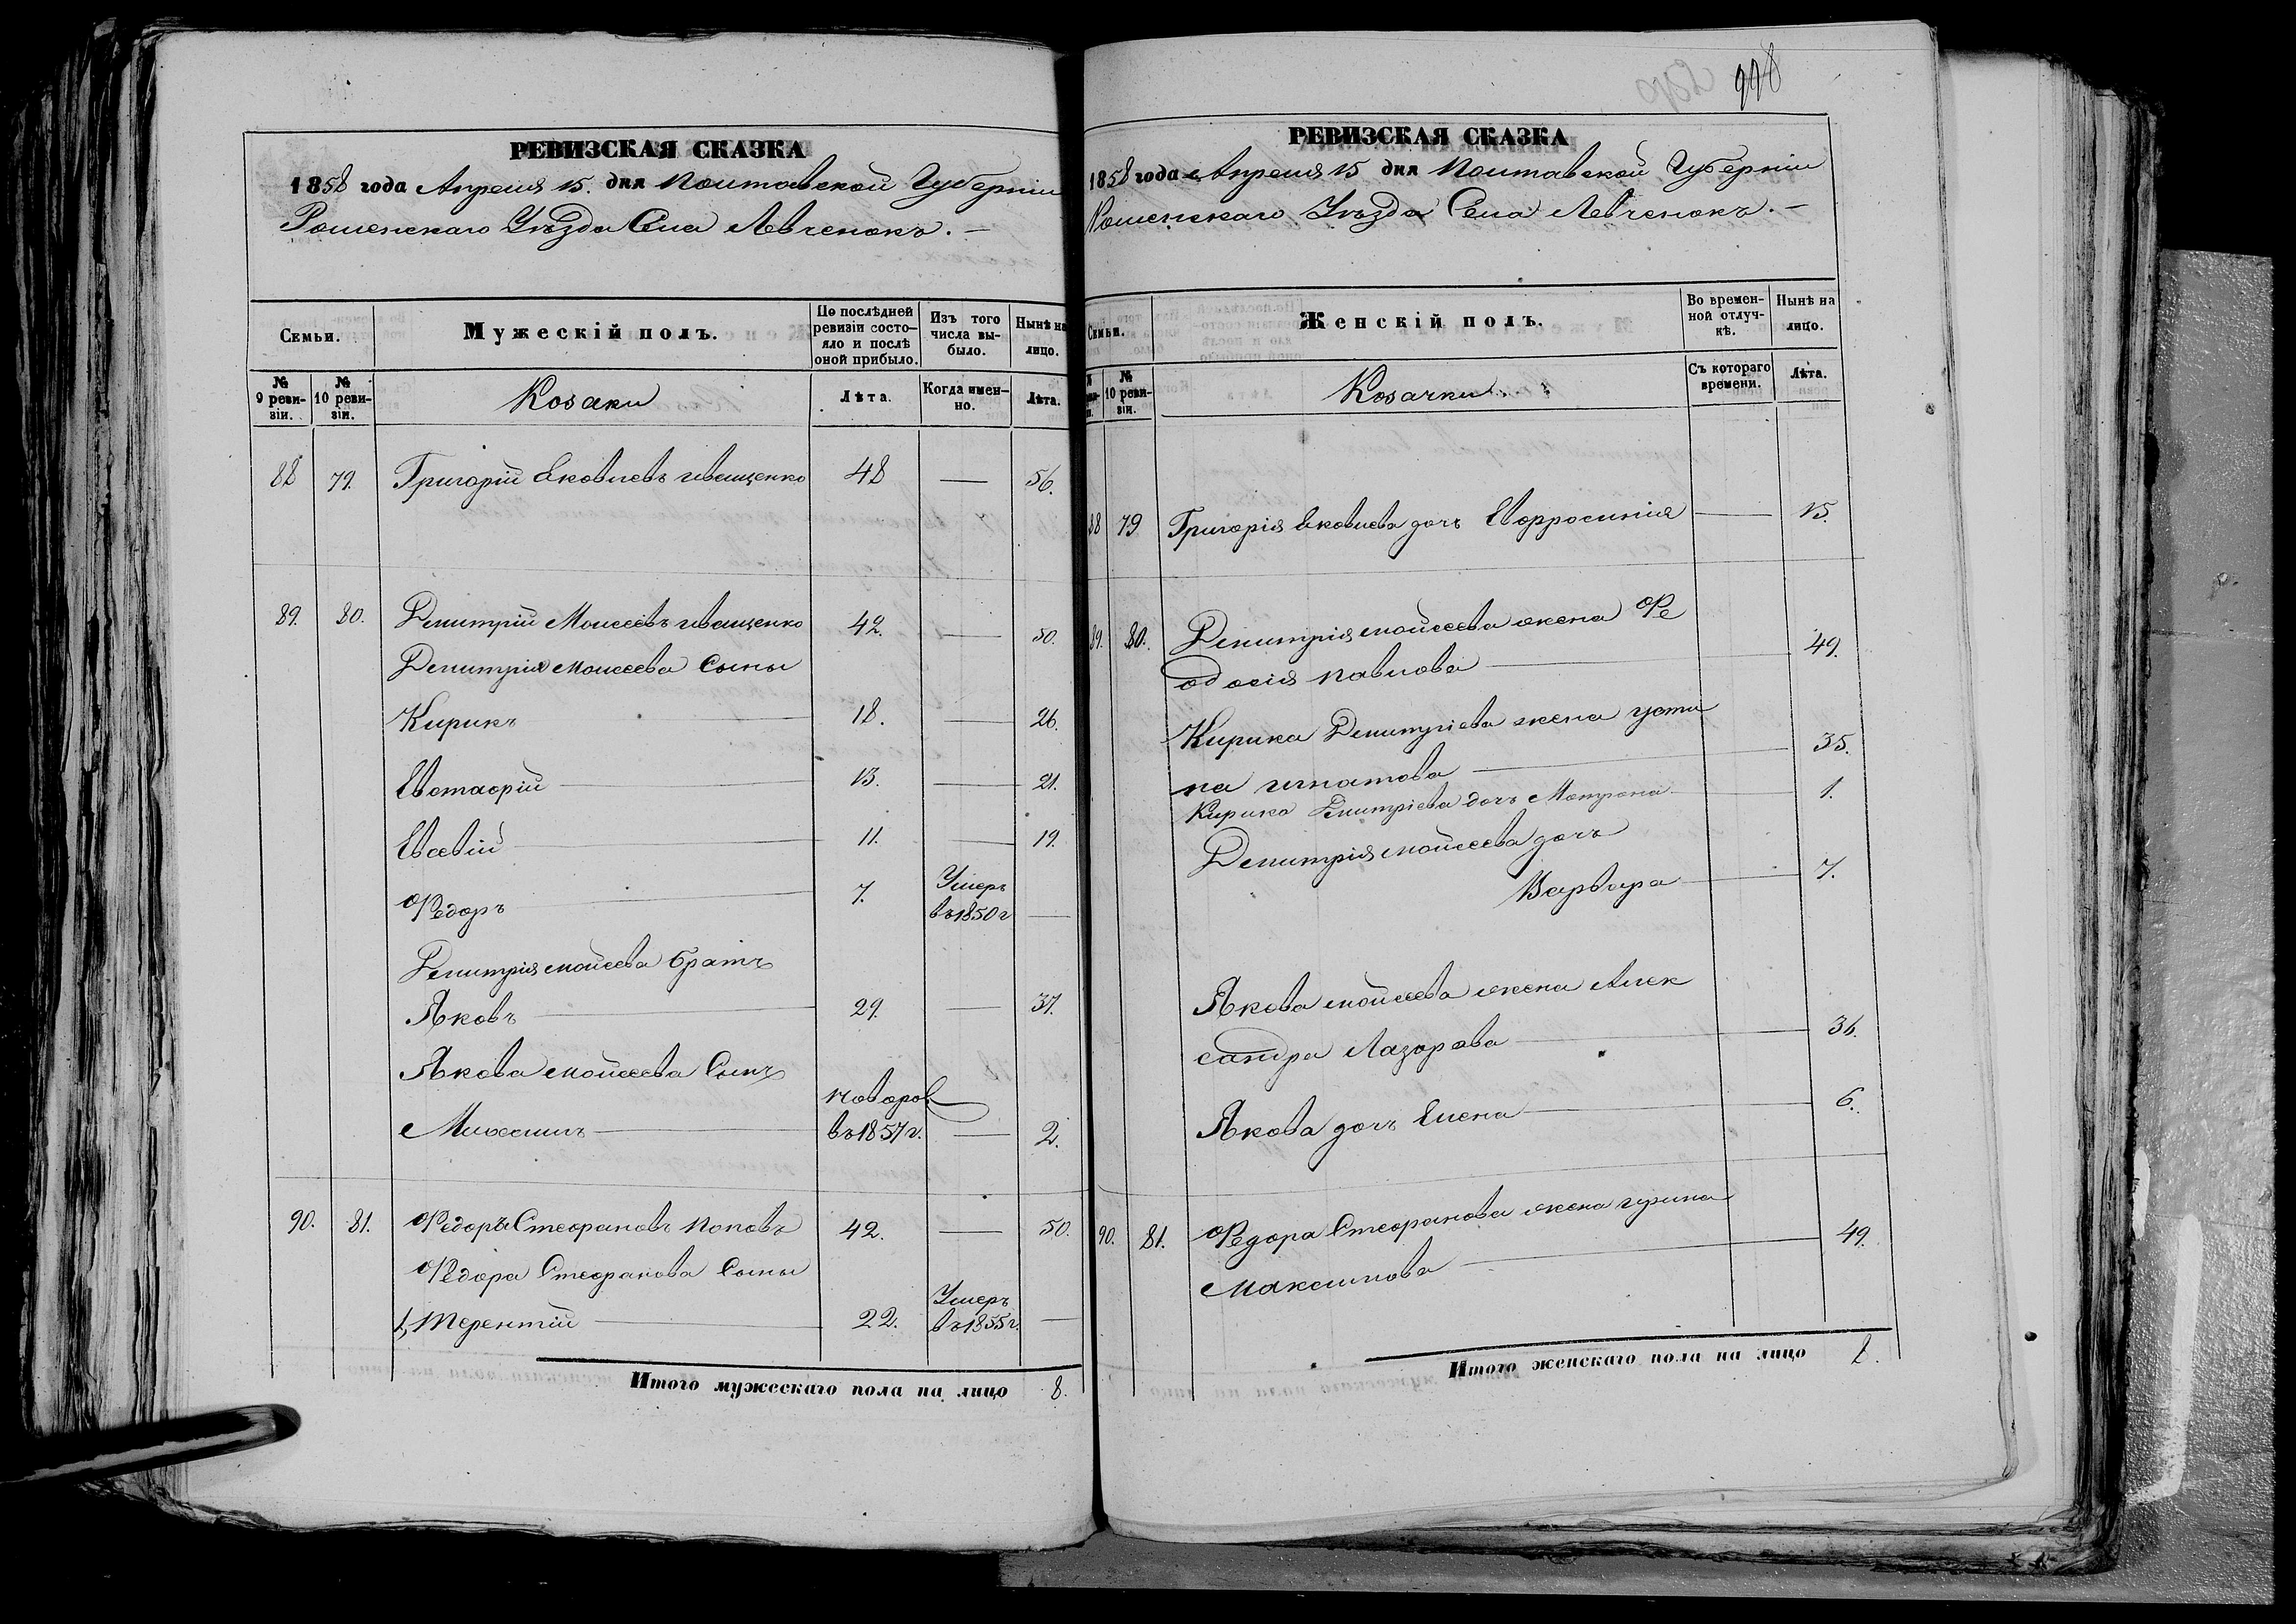 РЕВИЗСКАЯ СКАЗКА
1858 года Апреля 15. дня Полтавской Губерніи
Роменскаго Уѣзда Села Левченокъ. —
Семьи.
Мужескій полъ.
По послѣдней ревизіи состояло и послѣ оной прибыло.
Изъ того числа выбыло.
Нынѣ на лицо.
№ 9 ревизіи.
№ 10 ревизіи.
Козаки
Лѣта.
Когда именно.
Лѣта.
88 79. Григорій Яковлевъ Иващенко 48 — 56.
89. 80. Демитрій Моисеевъ Иващенко 42. — 50.
Демитрія Моисеева Сыны
Кирикъ 18. — 26.
Евстафій 13. — 21.
Евсевій 11. — 19.
Федоръ 7. Умеръ въ 1850 г —
Демитрія Моисеева братъ
Яковъ 29. — 37.
Якова Моисеева Сынъ
Михаилъ новорож. въ 1857 г. — 2.
90. 81. Федоръ Стефановъ Поповъ 42. — 50.
Федора Стефанова Сыны
1, Терентій 22. Умеръ въ 1855 г. —
Итого мужескаго пола на лицо 8.
998
РЕВИЗСКАЯ СКАЗКА
1858 года Апреля 15 дня Полтавской Губерніи
Роменскаго Уѣзда Села Левченокъ. —
Семьи.
Женскій полъ.
Во временной отлучкѣ.
Нынѣ на лицо.
№ 10 ревизіи.
Козачки
Съ котораго времени.
Лѣта.
88 79 Григорія Яковлева дочь Евфросинія — 15.
89. 80. Демитрія Моисеева жена Фе
одосія Павлова 49.
Кирика Демитріева жена Усти
на Игнатова 35.
Кирика Демитріева дочь Мотрона 1.
Демитрія Моисеева дочь
Варвара 7.
Якова Моисеева жена Алек
сандра Лазорева 36.
Якова дочь Елена 6.
90. 81. Федора Стефанова жена Ирина
Максимова 49.
Итого женскаго пола на лицо 8.